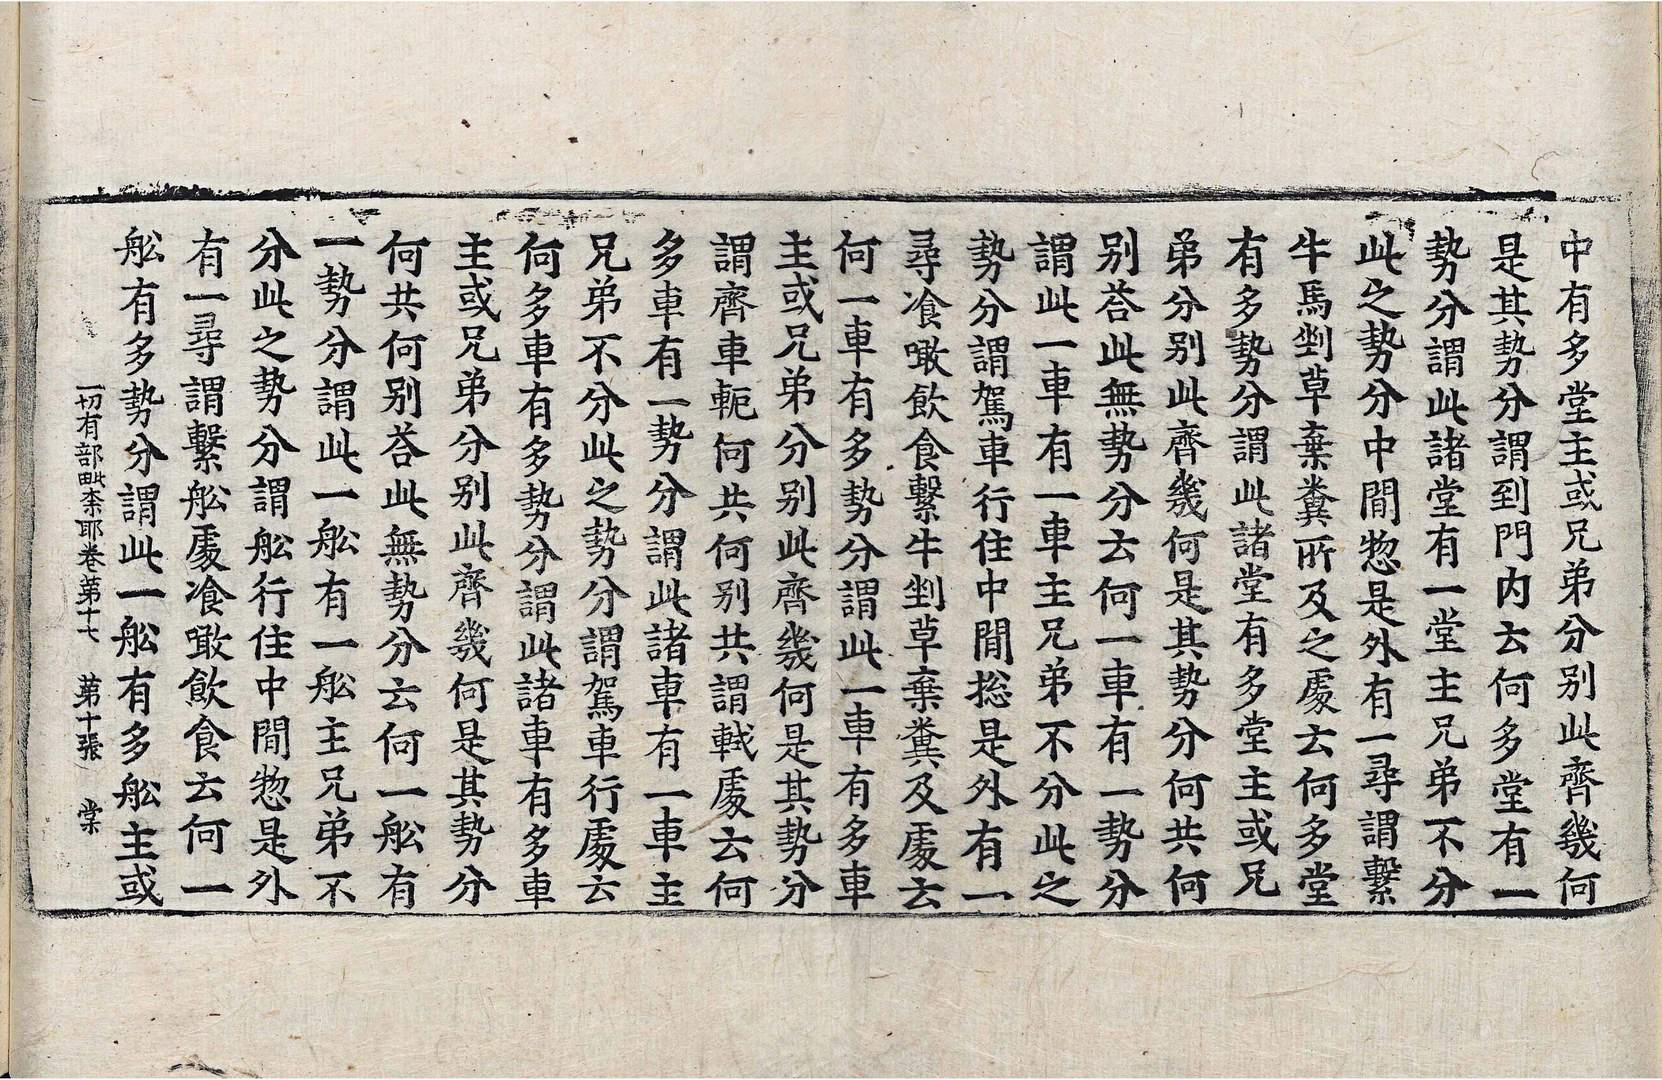 中有多堂主或兄弟分别此齊幾何
是其勢分謂到門内云何多堂有一
勢分謂此諸堂有一堂主兄弟不分
此之勢分中間惣是外有一尋謂繫
牛馬剉草棄糞所及之處云何多堂
有多勢分謂此諸堂有多堂主或兄
弟分别此齊幾何是其勢分何共何
别荅此無勢分云何一車有一勢分
謂此一車有一車主兄弟不分此之
勢分謂駕車行住中間揔是外有一
尋飡噉飲食繫牛剉草棄糞及處云
何一車有多勢分謂此一車有多車
主或兄弟分别此齊幾何是其勢分
謂齊車軛何共何别共謂軾處云何
多車有一勢分謂此諸車有一車主
兄弟不分此之勢分謂駕車行處云
何多車有多勢分謂此諸車有多車
主或兄弟分别此齊幾何是其勢分
何共何别荅此無勢分云何一舩有
一勢分謂此一舩有一舩主兄弟不
分此之勢分謂舩行住中間惣是外
有一尋謂繫舩處飡噉飲食云何一
舩有多勢分謂此一舩有多舩主或
一切有部毗柰耶卷第十七 第十張 棠